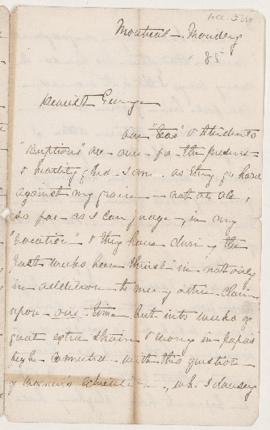 Montreal. Monday
85
Dearest George
Our "Teas" & Students'
"Receptions" are over for the present
& heartily glad I am. as they go hard
against my grain - not at all,
so far as I can judge, in my
"vocation" & they have during the
past weeks been thrust in not only
in addition to many other claims
upon our time but into weeks of
great extra strain & worry on Papa's
high connected with this question
of